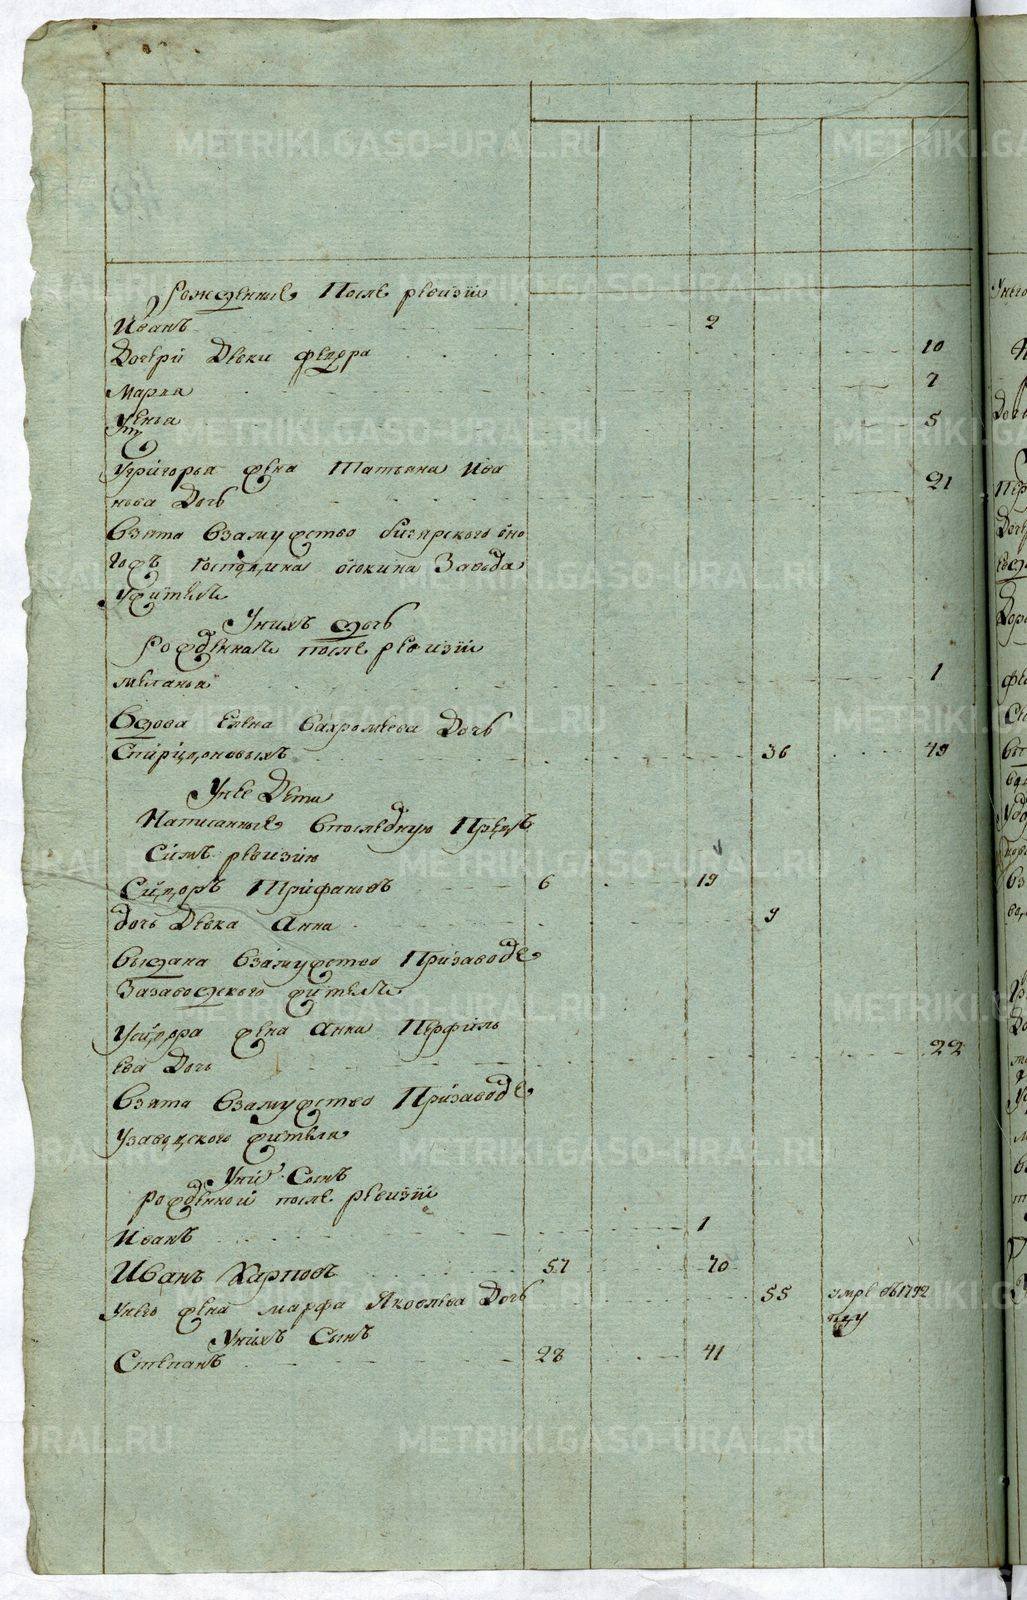 рожденные После ревизiи
Иванъ 2
Дочери Девки федора 10
Марья 7
5
Угригорья жена Татьяна Ива
нова Дочь 21
Взята Взамужство бисярского оно
гожъ Господина осокина Завода
ужителя
Унихъ дочь
рожденная после ревизiи
меланья 1
Вдова Елена Вахромеева Дочь
Спиридоновыхъ 36 49
Унее Дети
Написанные Впоследную Предъ
Симъ ревизiю
Сидоръ Трифановъ 6 19
дочь Девка Анна 9
Выдана Взамужство Призаводе
Зазаводского жителя
Усидора жена Анна Перфиль
ева Дочь 22
Взята Взамужство Призаводе
узаводского жителя
Унихъ Сынъ
рожденной после ревизiи
Иванъ 1
Иванъ Карповъ 57 70
Унево жена марфа Яковлева Дочь 55 умре въ1792
году
Унихъ Сынъ
Степанъ 28 41
METRIKI.GASO-URAL.RU